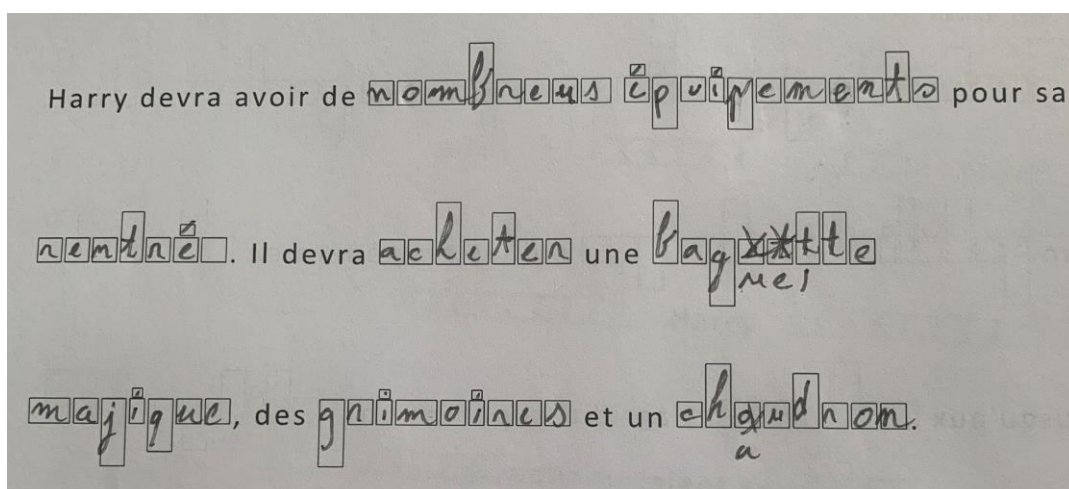 Harry devra avoir de nombreus épuipements pour sa
rentré. Il devra acheter une baguette
majique, des grimoires et un chaudrom.